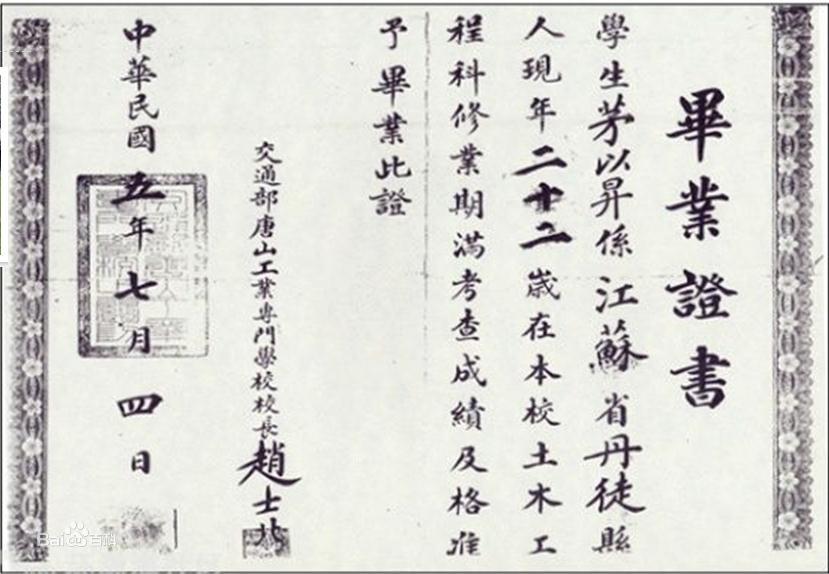 畢業證書
學生茅以昇係江蘇省丹徒縣
人現年二十二歲在本校土木工
程科修業期滿考查成績及格准
予畢業此證
交通部唐山工業專門學校校長趙士北
中華民國五年七月四日
Bai百科